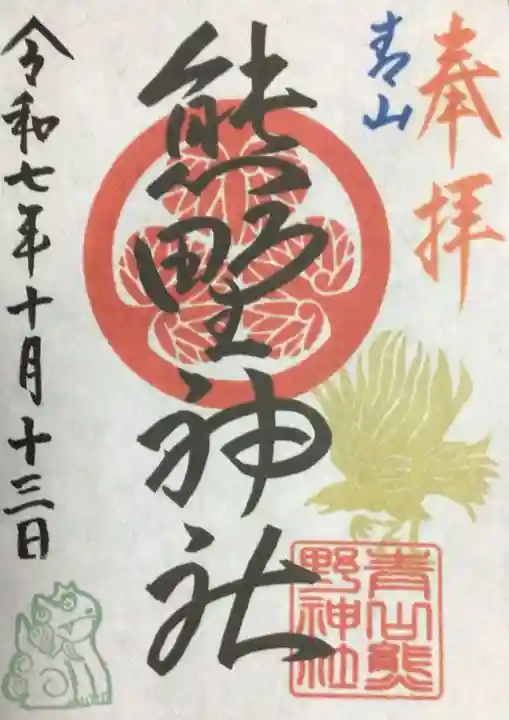 奉拝
青山
熊野神社
青山熊
野神社
令和七年十月十三日